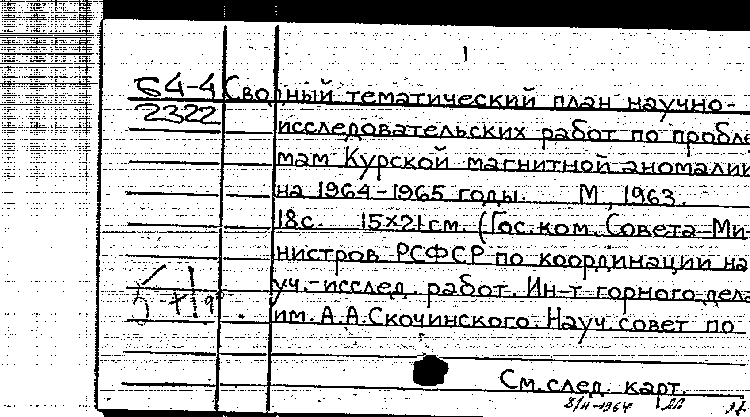 1
64-4
2322
Сводный тематический план научно-
исследовательских работ по пробле
мам Курской магнитной аномалии
на 1964-1965 годы. М, 1963.
18с. 15×21см. (Гос. ком. Совета Ми-
нистров РСФСР по координации на
уч.-исслед. работ. Ин-т горного дела
им. А.А.Скочинского. Науч. совет по
См. след. карт.